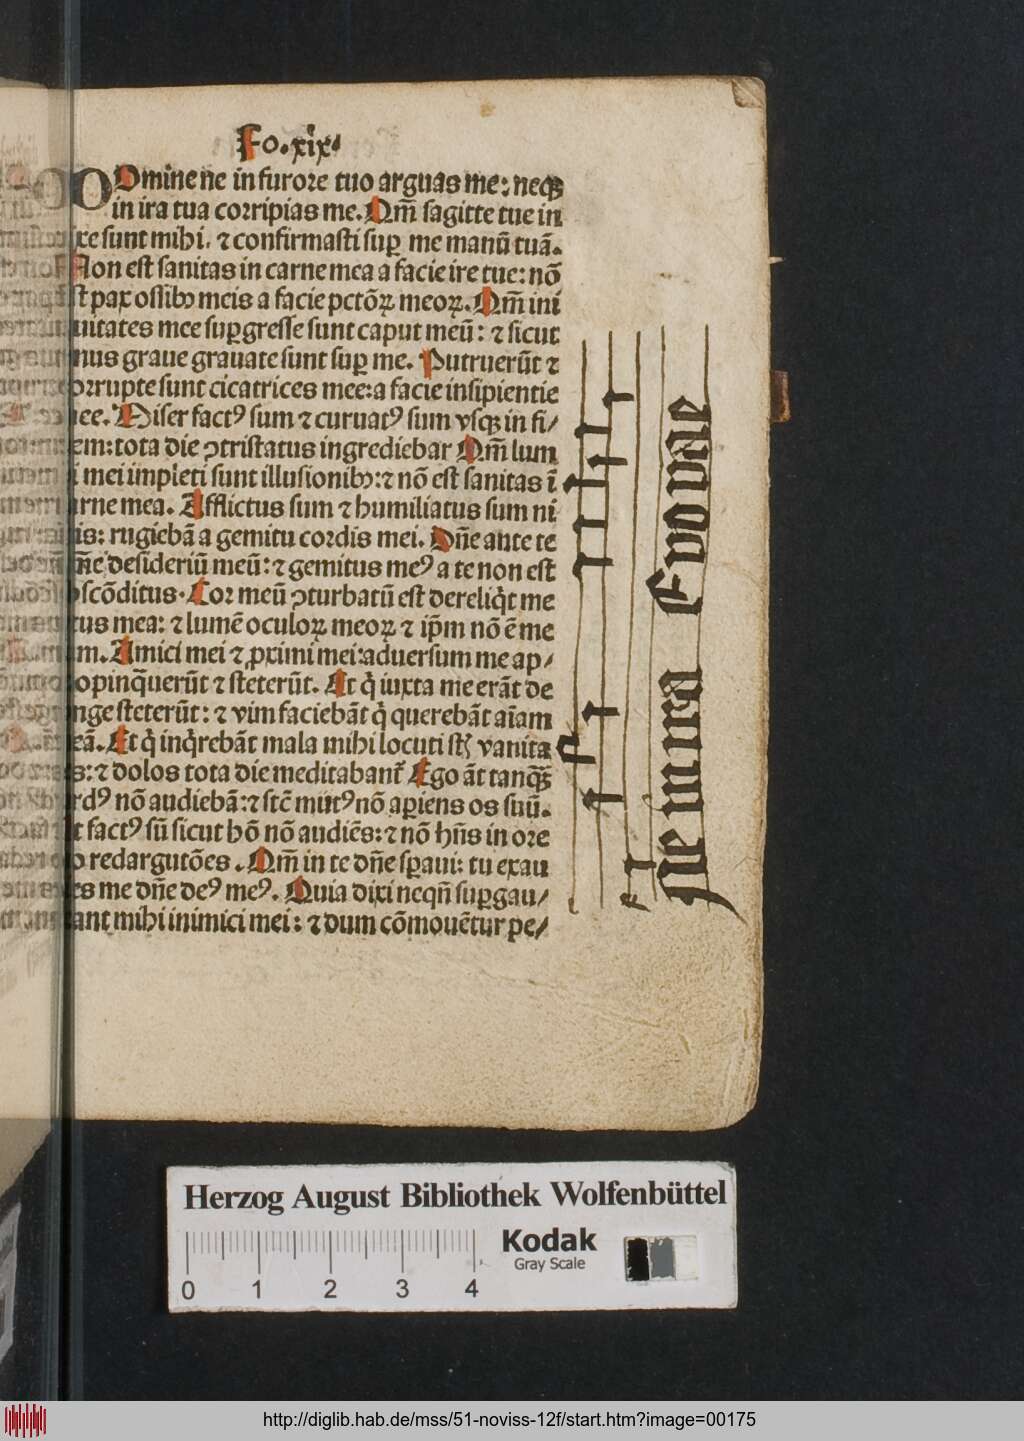 Fo.xix.
DOmine ne in furore tuo arguas me: neqꝫ
in ira tua corripias me. Qm̄ sagitte tue in
xe sunt mihi. ⁊ confirmasti suꝑ me manū tuā.
Non est sanitas in carne mea a facie ire tue: nō
st pax ossibꝫ meis a facie pctōꝝ meoꝝ. Qm̄ ini
uitates mee suꝑgresse sunt caput meū: ⁊ sicut
nus graue grauate sunt suꝑ me. Putruerūt ⁊
orrupte sunt cicatrices mee: a facie insipientie
ee. Miser factꝰ sum ⁊ curuatꝰ sum vsqꝫ in fi/
em: tota die ꝯtristatus ingrediebar Qm̄ lum
i mei impleti sunt illusionibꝫ: ⁊ nō est sanitas ī
rne mea. Afflictus sum ⁊ humiliatus sum ni
is: rugiebā a gemitu cordis mei. Dn̄e ante te
mne desideriū meū: ⁊ gemitus meꝰ a te non est
scōditus. Cor meū ꝯturbatū est dereliq̇t me
tus mea: ⁊ lumē oculoꝝ meoꝝ ⁊ ip̄m nō ē me
m. Amici mei ⁊ ꝓximi mei: aduersum me ap/
opinq̄uerūt ⁊ steterūt. Et q̇ iuxta me erāt de
nge steterūt: ⁊ vim faciebāt q̇ querebāt aīam
eā. Et q̇ inq̇rebāt mala mihi locuti st̄ vanita
s: ⁊ dolos tota die meditabant᷑ Ego āt tanqꝫ̄
rdꝰ nō audiebā: ⁊ sic̄ mutꝰ nō aꝑiens os suū.
t factꝰ sū sicut hō nō audiēs: ⁊ nō hn̄s in ore
o redargutōes. Qm̄ in te dn̄e sꝑaui: tu exau
es me dn̄e deꝰ meꝰ. Quia dixi neqn̄ suꝑgau/
ant mihi inimici mei: ⁊ dum cōmouētur pe/
Euouae
Herzog August Bibliothek Wolfenbüttel
Kodak
Gray Scale
0 1 2 3 4
http://diglib.hab.de/mss/51-noviss-12f/start.htm?image=00175